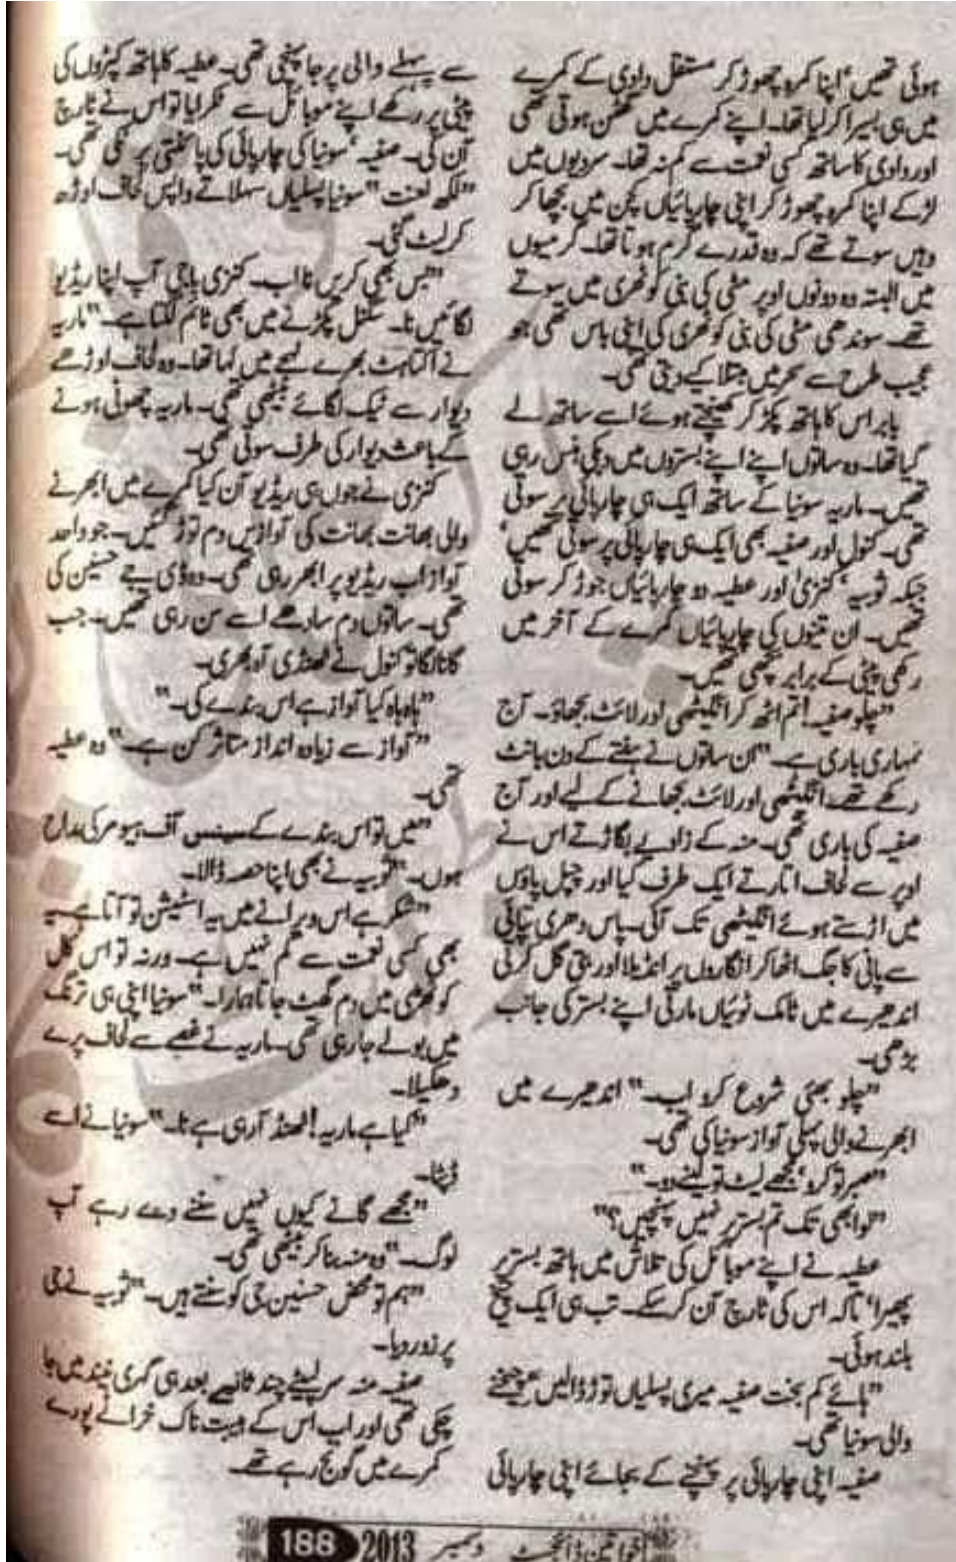 ہوئی تھیں‘ اپنا کمرہ چھوڑ کر مستقل دادی کے کمرے
میں ہی بسیرا کر لیا تھا۔ اپنے کمرے میں گھٹن ہوتی تھی
اور دادی کا ساتھ کسی نعمت سے کم نہ تھا۔ سردیوں میں
لڑکے اپنا کمرہ چھوڑ کر اپنی چارپائیاں کچن میں بچھا کر
وہیں سوتے تھے کہ وہ قدرے گرم ہوتا تھا۔ گرمیوں
میں البتہ وہ دونوں اوپر مٹی کی بنی کوٹھری میں سوتے
تھے۔ سوندھی مٹی کی بنی کوٹھری کی اپنی باس تھی جو
عجیب طرح سے سحر میں مبتلا کیے دیتی تھی۔
بابر اس کا ہاتھ پکڑ کر کھینچتے ہوئے اسے ساتھ لے
گیا تھا۔ وہ ساتوں اپنے اپنے بستروں میں دبکی ہنس رہی
تھیں۔ ماریہ سونیا کے ساتھ ایک ہی چارپائی پر سوتی
تھی۔ کنول اور صفیہ بھی ایک ہی چارپائی پر سوتی تھیں‘
جبکہ ثوبیہ‘ کنزیٰ اور عطیہ دو چارپائیاں جوڑ کر سوتی
تھیں۔ ان تینوں کی چارپائیاں کمرے کے آخر میں
رکھی پیٹی کے برابر بچھی تھیں۔
”چلو صفیہ! تم اٹھ کر انگیٹھی اور لائٹ بجھاؤ۔ آج
تمہاری باری ہے۔“ ان ساتوں نے ہفتے کے دن بانٹ
رکھے تھے، انگیٹھی اور لائٹ بجھانے کے لیے اور آج
صفیہ کی باری تھی۔ منہ کے زاویے بگاڑتے اس نے
اوپر سے لحاف اتارتے ایک طرف کیا اور چپل پاؤں
میں اڑستے ہوئے انگیٹھی تک آئی۔ پاس دھری تپائی
سے پانی کا جگ اٹھا کر انگاروں پر انڈیلا اور بتی گل کرتی
اندھیرے میں ٹامک ٹوئیاں مارتی اپنے بستر کی جانب
بڑھی۔
”چلو بھئی شروع کرو اب۔“ اندھیرے میں
ابھرنے والی پہلی آواز سونیا کی تھی۔
”صبر تو کرو‘ مجھے لیٹ تو لینے دو۔“
”تو ابھی تک تم بستر پر نہیں پہنچیں؟“
عطیہ نے اپنے موبائل کی تلاش میں ہاتھ بستر پر
پھیرا‘ تاکہ اس کی ٹارچ آن کر سکے۔ تب ہی ایک چیخ
بلند ہوئی۔
”ہائے کم بخت صفیہ میری پسلیاں توڑ ڈالیں۔“ چیخنے
والی سونیا تھی۔
صفیہ اپنی چارپائی پر پہنچنے کے بجائے اپنی چارپائی
سے پہلے والی پر جا پہنچی تھی۔ عطیہ کا ہاتھ کپڑوں کی
پیٹی پر رکھے اپنے موبائل سے ٹکرایا تو اس نے ٹارچ
آن کی۔ صفیہ‘ سونیا کی چارپائی کی پائنتی پر ٹکی تھی۔
”لکھ لعنت“ سونیا پسلیاں سہلاتے واپس لحاف اوڑھ
کر لیٹ گئی۔
”بس بھی کریں نا اب۔ کنزی باجی آپ اپنا ریڈیو
لگائیں نا۔ سگنل پکڑنے میں بھی ٹائم لگتا ہے۔“ ماریہ
نے اکتاہٹ بھرے لہجے میں کہا تھا۔ وہ لحاف اوڑھے
دیوار سے ٹیک لگائے بیٹھی تھی۔ ماریہ چھوٹی ہونے
کے باعث دیوار کی طرف سوتی تھی۔
کنزی نے جوں ہی ریڈیو آن کیا کمرے میں ابھرنے
والی بھانت بھانت کی آوازیں دم توڑ گئیں۔ جو واحد
آواز اب ریڈیو پر ابھر رہی تھی۔ وہ ڈی جے حسنین کی
تھی۔ ساتوں دم سادھے اسے سن رہی تھیں۔ جب
گانا لگا تو کنول نے ٹھنڈی آہ بھری۔
”ہاہ ہاہ کیا آواز ہے اس بندے کی۔“
”آواز سے زیادہ انداز متاثر کن ہے۔“ وہ عطیہ
تھی۔
”میں تو اس بندے کے سینس آف ہیومر کی مداح
ہوں۔“ ثوبیہ نے بھی اپنا حصہ ڈالا۔
”شکر ہے اس ویرانے میں یہ اسٹیشن تو آتا ہے۔ یہ
بھی کسی نعمت سے کم نہیں ہے۔ ورنہ تو اس کال
کوٹھڑی میں دم گھٹ جاتا ہمارا۔“ سونیا اپنی ہی ترنگ
میں بولے جا رہی تھی۔ ماریہ نے غصے سے لحاف پرے
دھکیلا۔
”کیا ہے ماریہ! ٹھنڈ آ رہی ہے نا۔“ سونیا نے اسے
ڈپٹا۔
”مجھے گانے کیوں نہیں سننے دے رہے آپ
لوگ۔“ وہ منہ بنا کر بیٹھی تھی۔
”ہم تو محض حسنین جی کو سنتے ہیں۔“ ثوبیہ نے جی
پر زور دیا۔
صفیہ منہ سر لپیٹے چند ثانیے بعد ہی گہری نیند میں جا
چکی تھی اور اب اس کے ہیبت ناک خراٹے پورے
کمرے میں گونج رہے تھے۔
خواتین ڈائجسٹ دسمبر 2013 188